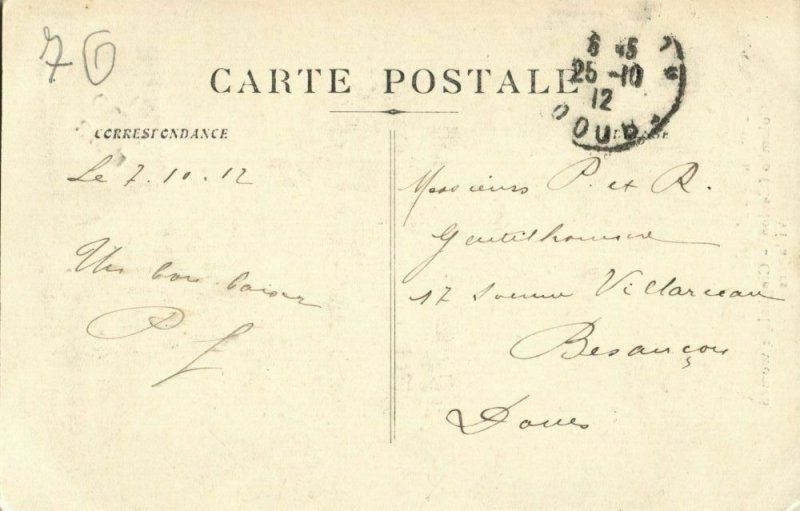 70
CARTE POSTALE
6 45
25-10
12
DOUBS
CORRESPONDANCE
Le 7.10.12
Un bon baiser
P L
Messieurs P. et R.
Gentilhomme
17 Avenue Villarceau
Besançon
Doubs